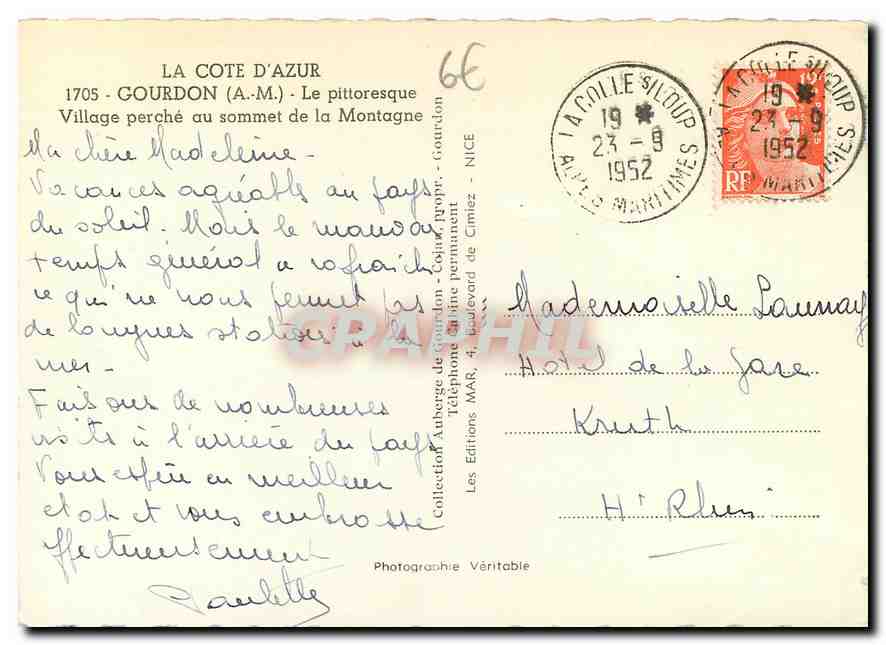 LA COTE D'AZUR
1705 - GOURDON (A.-M.) - Le pittoresque
Village perché au sommet de la Montagne
6€
Ma chère Madeleine -
Vacances agréable au pays
du soleil. Mais le mauvais
temps général a rafraichi
ce qui ne nous permet pas
de longues stations à la
mer -
Faisons de nombreuses
visites à l'arrière du pays
Vous espère en meilleur
état et vous embrasse
affectueusement
Paulette
Collection Auberge de Gourdon - Cojan, propr. - Gourdon
Téléphone Cabine permanent
Les Editions MAR, 4, Boulevard de Cimiez - NICE
Photographie Véritable
LA COLLE S/LOUP
19 *
23 - 9
1952
ALPES MARITIMES
LA COLLE S/LOUP
19 *
23 - 9
1952
MARITIMES
RF
Mademoiselle Launay
Hôtel de la Gare
Kruth
Ht Rhin
CPAPHIL